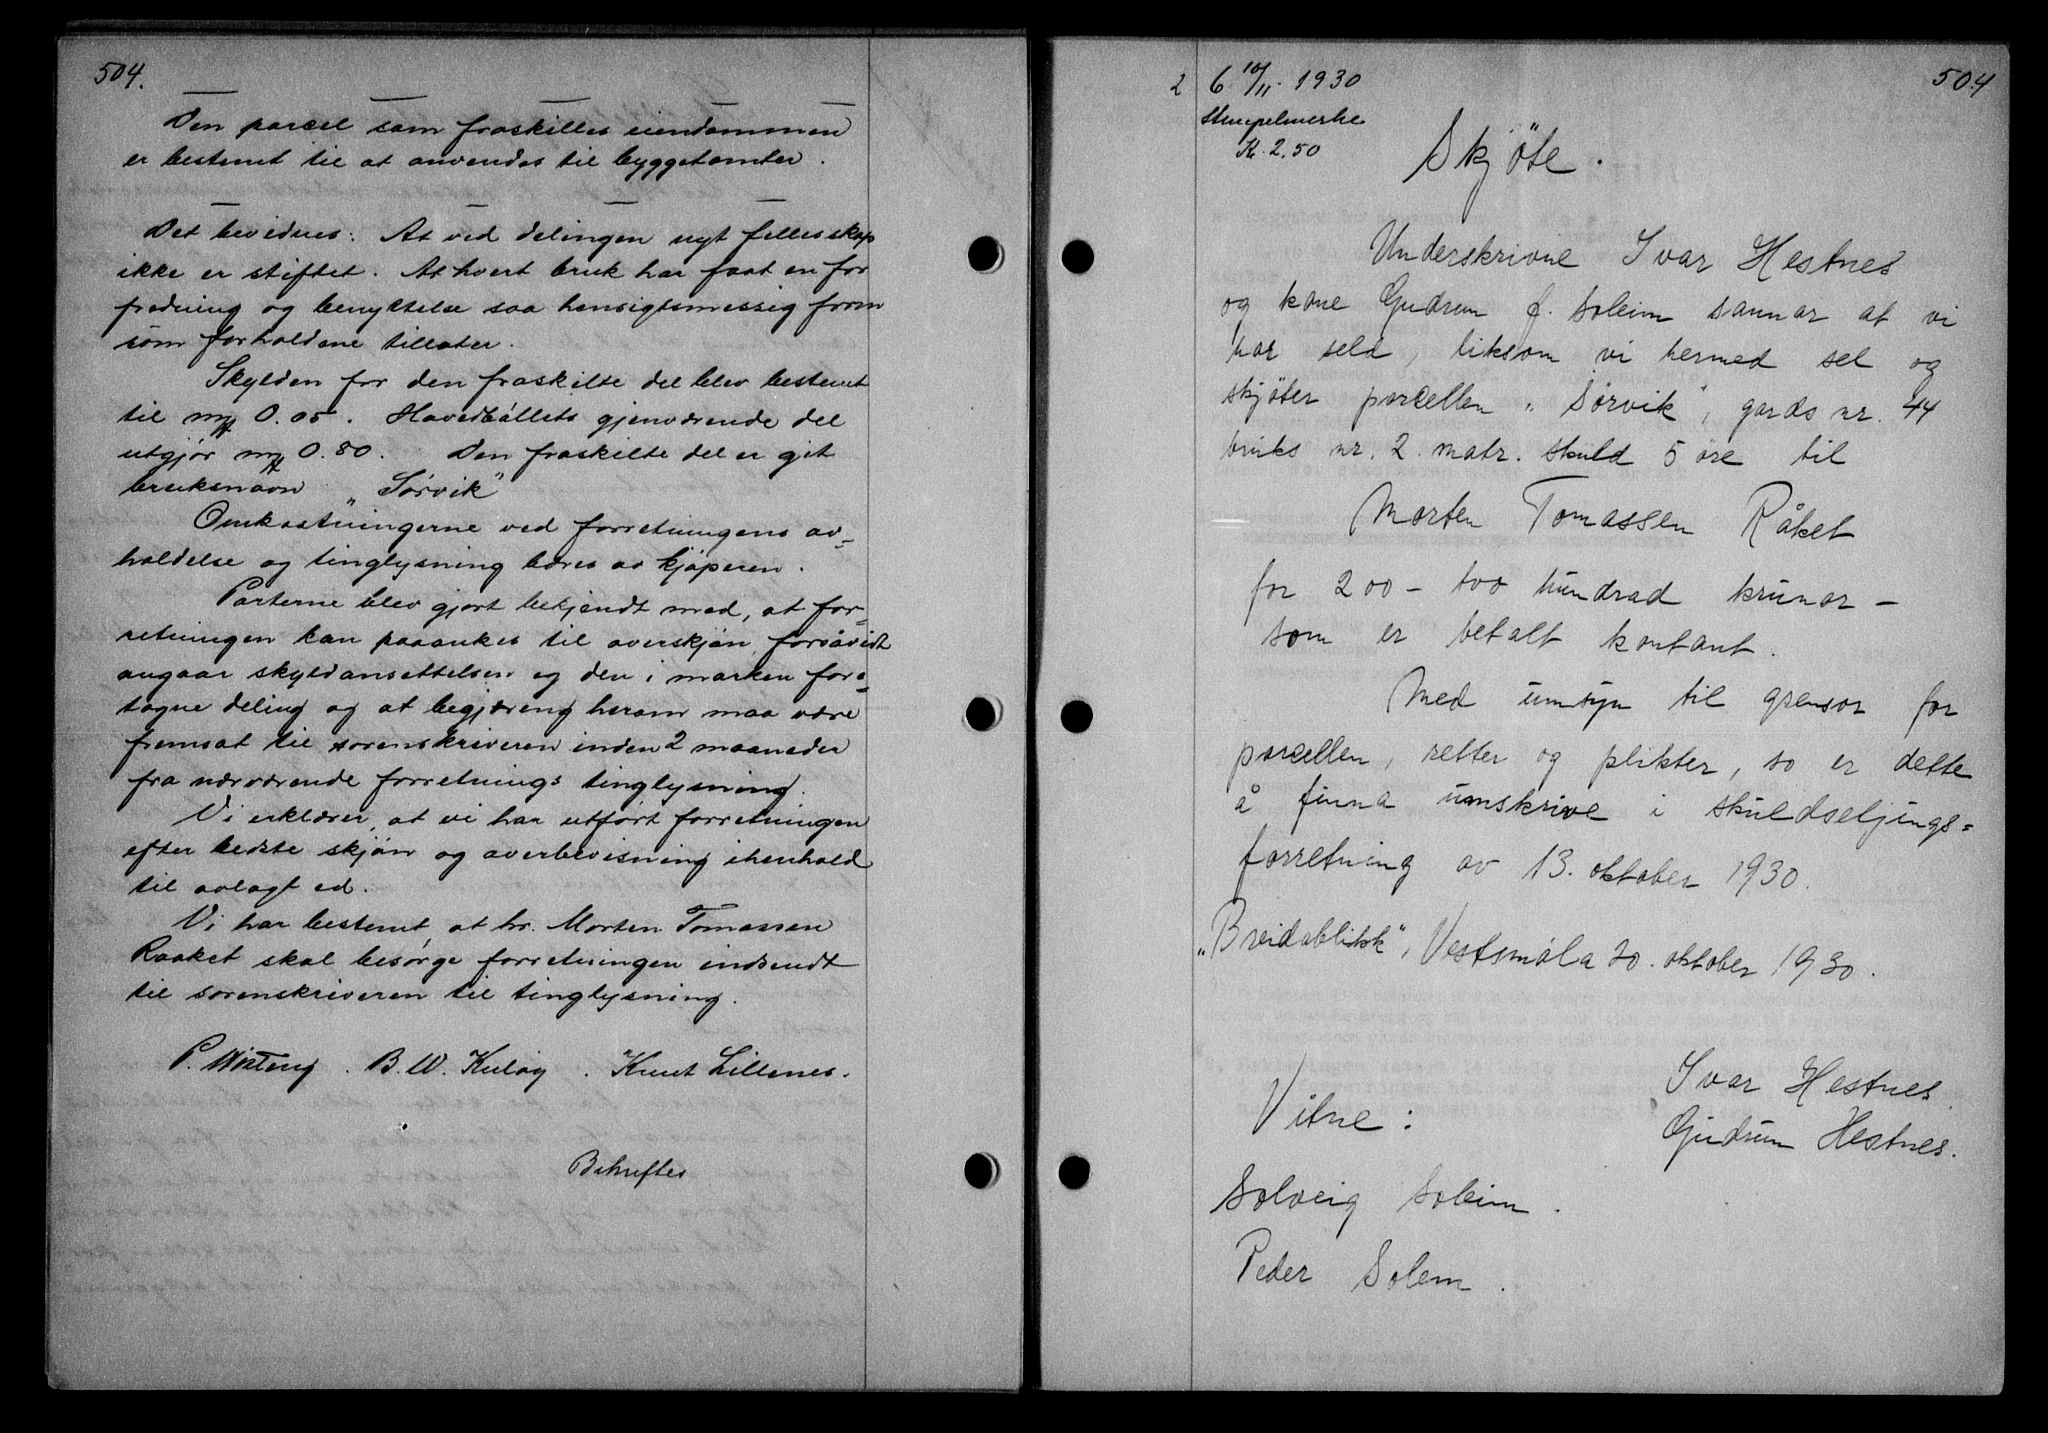 504.
Den parcel som fraskilles eiendommen
er bestemt til at anvendes til byggetomter.
Det bevidnes: At ved delingen nyt fellesskap
ikke er stiftet. At hvert bruk har faat en for
fredning og benyttelse saa hensigtsmessig form
som forholdene tillater.
Skylden for den fraskilte del blev bestemt
til mk 0.05. Hovedbøllets gjenværende del
utgjør mk 0.80. Den fraskilte del er git
bruksnavn „Sørvik"
Omkostningerne ved forretningens av-
holdelse og tinglysning bæres av kjøperen.
Parterne blev gjort bekjendt med, at for-
retningen kan paaankes til overskjøn forsåvidt
angaar skyldansettelsen og den i marken fore-
tagne deling og at begjæring herom maa være
fremsat til sorenskriveren inden 2 maaneder
fra nærværende forretnings tinglysning.
Vi erklærer, at vi har utført forretningen
efter bedste skjøn og overbevisning ihenhold
til avlagt ed.
Vi har bestemt at hr. Morten Tomassen
Raaket skal besørge forretningen indsendt
til sorenskriveren til tinglysning.
B. W. Kuløy. Knut Lillenes.
Bekreftes
2 6 10/11. 1930
504
Stempelmerke
Kr. 2.50
Skjöte.
Underskrivne Ivar Hestnes
og kone Gudrun f. Soleim sannar at vi
har seld, liksom vi hermed sel og
skjöter parcellen „Sørvik", gards nr. 44
bruks nr. 2. matr. skuld 5 øre til
Morten Tomassen Råket
for 200 - tvo hundrad krunor -
som er betalt kontant.
Med umsyn til grensor for
parcellen, retter og plikter, so er dette
å finna umskrive i skuldseljings-
forretning av 13. oktober 1930.
„Breidablikk", Vestsmøla 20. oktober 1930.
Ivar Hestnes
Vitne:
Gudrun Hestnes.
Solveig Soleim.
Peder Solem.